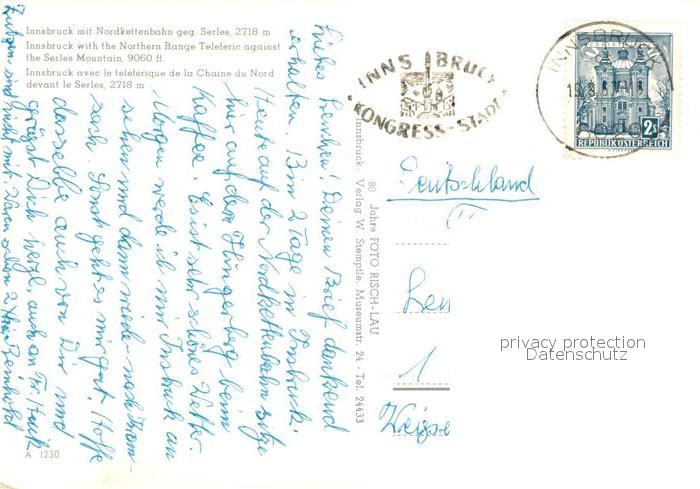 Innsbruck mit Nordkettenbahn geg. Serles, 2718 m
Innsbruck with the Northern Range Teleferic against
the Serles Mountain, 9060 ft.
Innsbruck avec le teleferique de la Chaine du Nord
devant le Serles, 2718 m
A 1230
Liebes Lenchen! Deinen Brief dankend
erhalten. Bin 2 Tage in Insbruck.
Heute auf der Nordkettenbahn, sitze
hier auf dem Hungerberg beim
Kaffee. Es ist sehr schönes Wetter.
Morgen werde ich mir Insbruck an
sehen und dann wieder nach
nach. Sonst geht es mir gut. Hoffe
dasselbe auch von Dir und
grüsst Dich herzl., auch an Fr.
sind nicht mit. Waren schon 2
Innsbruck: Verlag W. Stempfle, Museumstr. 24 - Tel. 24433
80 Jahre FOTO RISCH-LAU
INNSBRUCK
KONGRESS-STADT
INNSBRUCK
REPUBLIK ÖSTERREICH
2s
Deutschland
Len
1
Weisse
privacy protection
Datenschutz